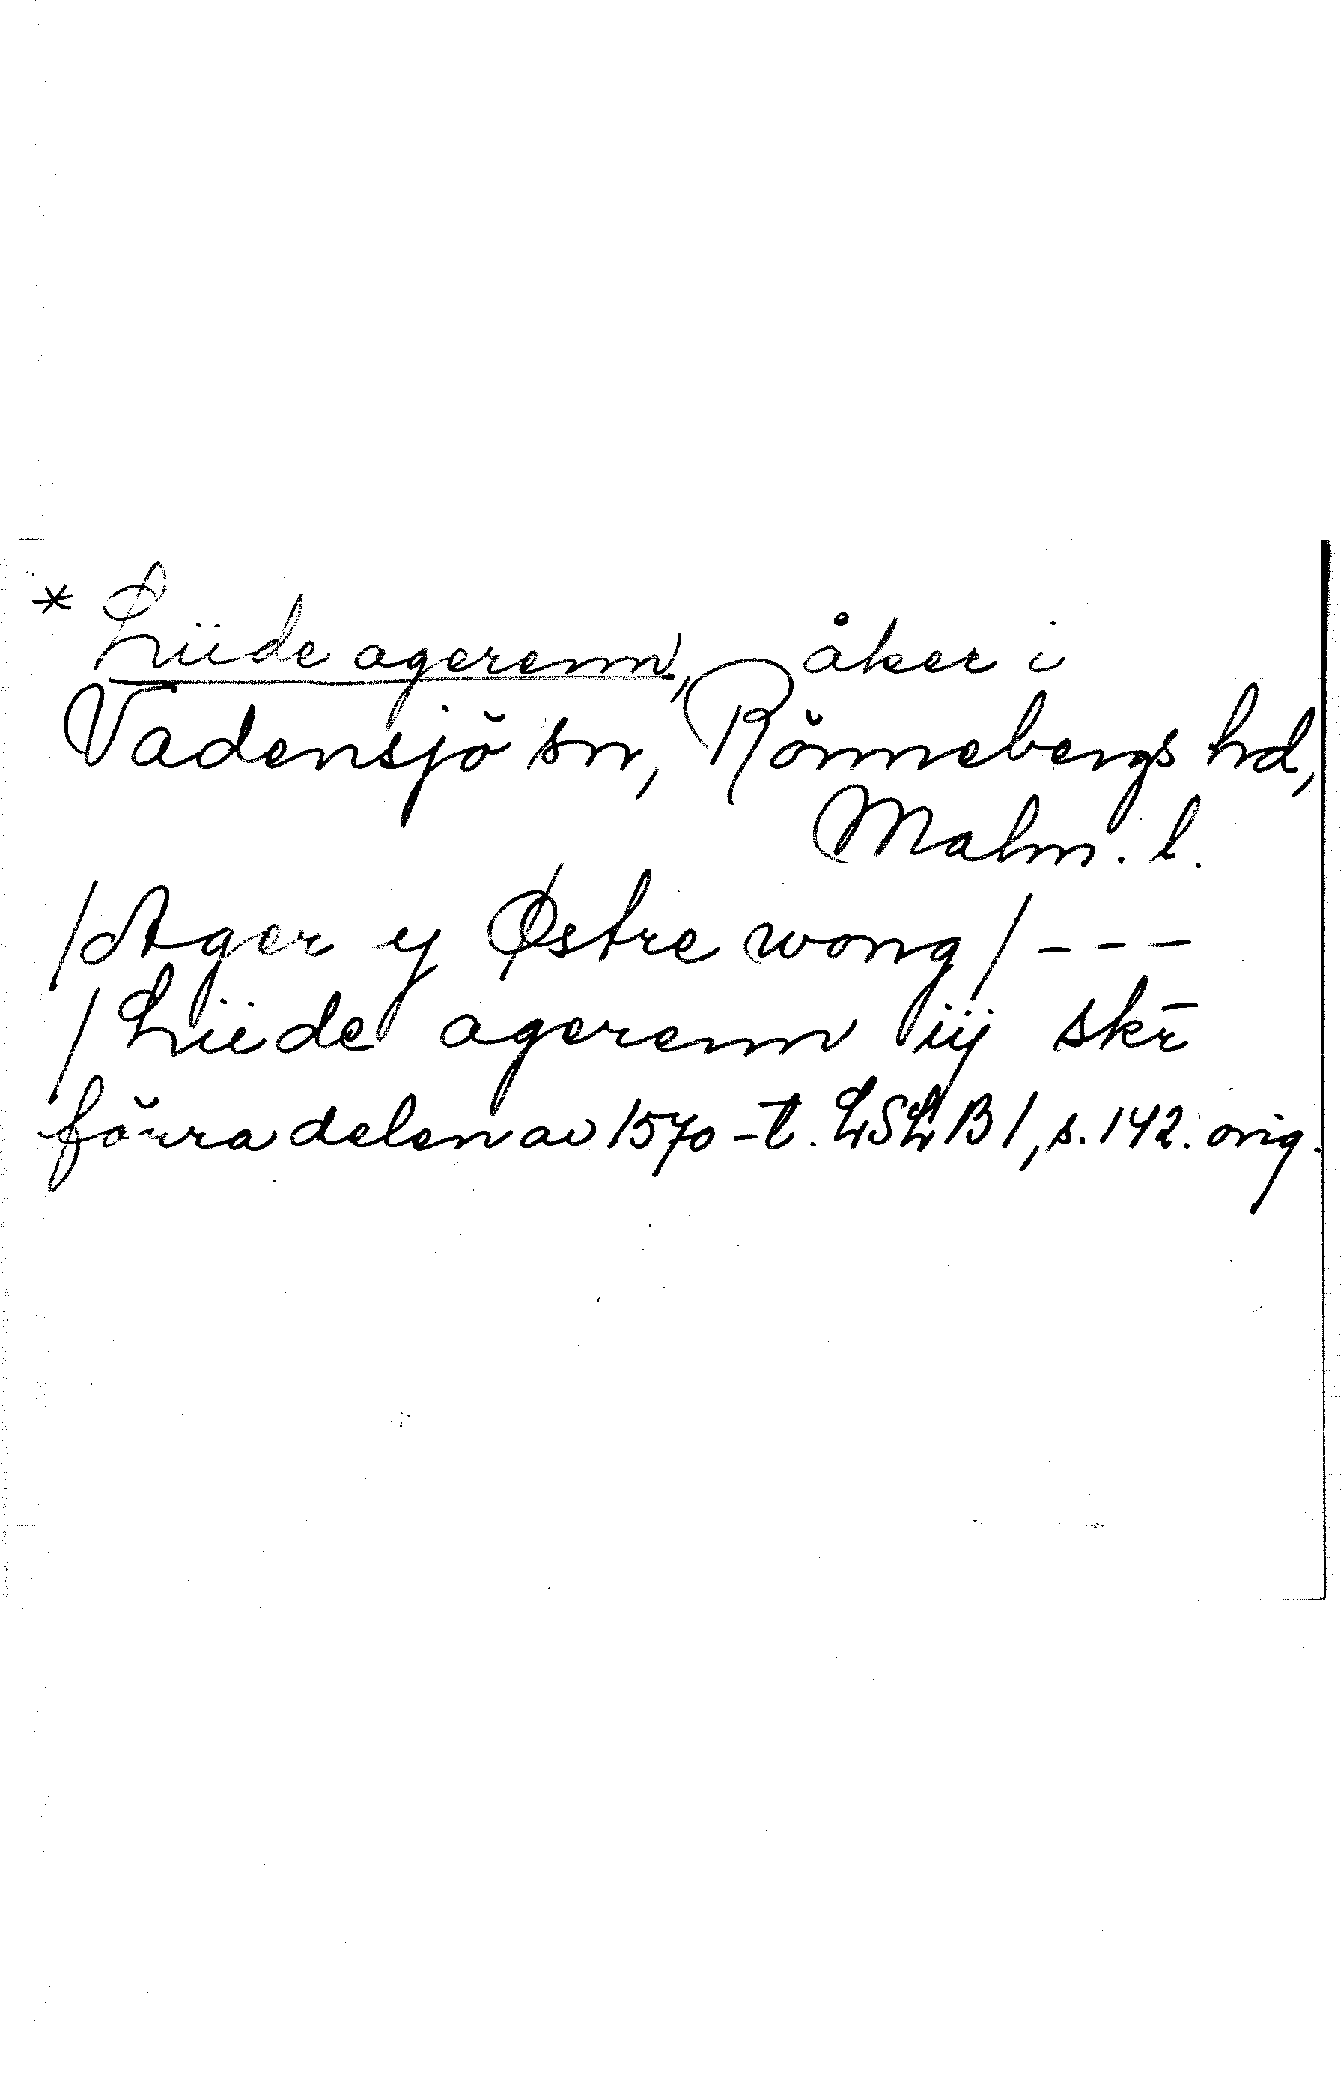 * Liide agerenn, åker i
Vadensjö sn, Rönnebergs hd,
Malm. l.
/Ager y Østre wong/---
/Liide agerenn iij skr̄
förra delen av 1570-t. LSLB1, s. 142. orig.